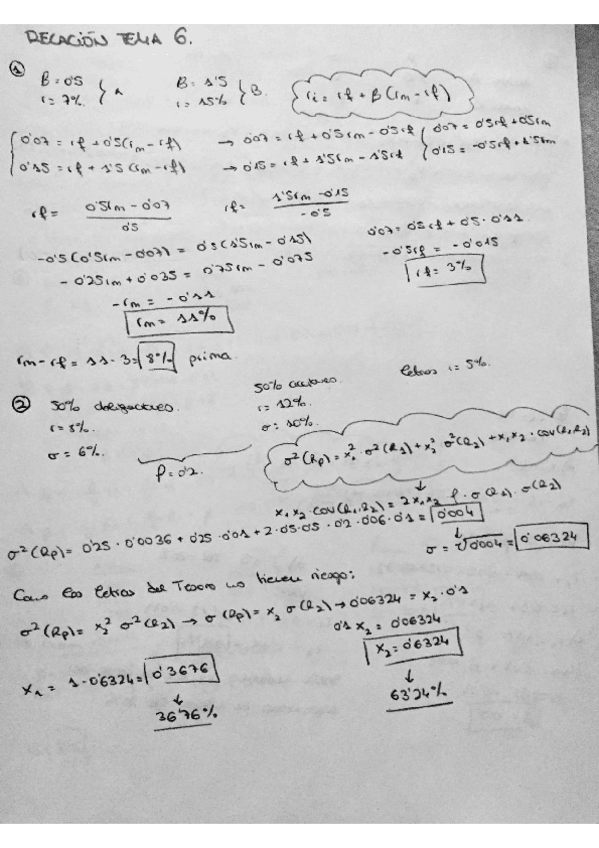 RELACIÓN TEMA 6.
①
B = 0'5
i = 7%.
} A
B = 1'5
i = 15%
} B.
ri = rf + B (rm - rf)
0'07 = rf + 0'5 (rm - rf) → 0'07 = rf + 0'5rm - 0'5rf { 0'07 = 0'5rf + 0'5rm
0'15 = rf + 1'5 (rm - rf) → 0'15 = rf + 1'5rm - 1'5rf { 0'15 = -0'5rf + 1'5rm
rf = 0'5rm - 0'07 / 0'5
rf = 1'5rm - 0'15 / -0'5
-0'5 (0'5rm - 0'07) = 0'5 (1'5rm - 0'15)
- 0'25rm + 0'035 = 0'75rm - 0'075
- rm = - 0'11
rm = 11%
0'07 = 0'5rf + 0'5 · 0'11
- 0'5rf = - 0'015
rf = 3%
rm - rf = 11 - 3 = 8% prima.
②
50% obligaciones.
i = 8%.
σ = 6%.
50% acciones.
i = 12%.
σ = 10%.
letras i = 5%.
ρ = 0'2.
σ²(Rp) = x₁² · σ²(R₁) + x₂² · σ²(R₂) + x₁x₂ · cov(R₁R₂)
↓
x₁x₂ · cov(R₁R₂) = 2x₁x₂ ρ · σ(R₁) · σ(R₂)
σ²(Rp) = 0'25 · 0'0036 + 0'25 · 0'01 + 2 · 0'5 · 0'5 · 0'2 · 0'06 · 0'1 = 0'004
↓
σ = √0'004 = 0'06324
Como las letras del Tesoro no tienen riesgo:
σ²(Rp) = x₂² σ²(R₂) → σ(Rp) = x₂ σ(R₂) → 0'06324 = x₂ · 0'1
0'1 x₂ = 0'06324
x₂ = 0'6324
↓
63'24%
x₁ = 1 - 0'6324 = 0'3676
↓
36'76%